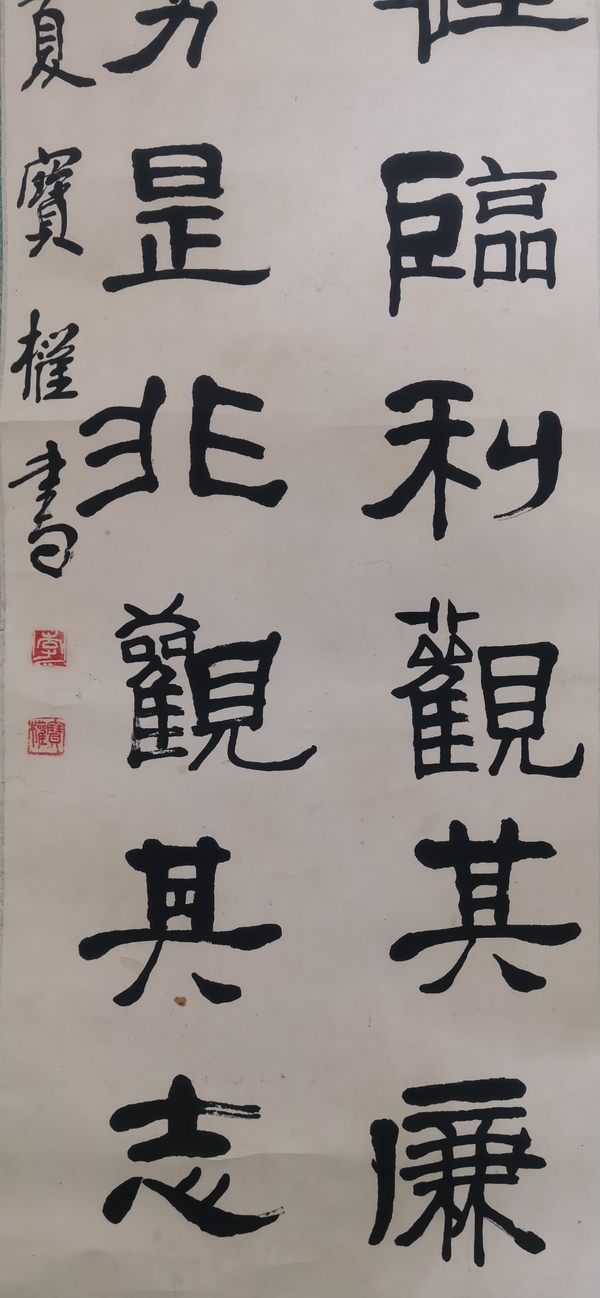 臨利觀其廉
是非觀其志
夏寶權書
李
寶權